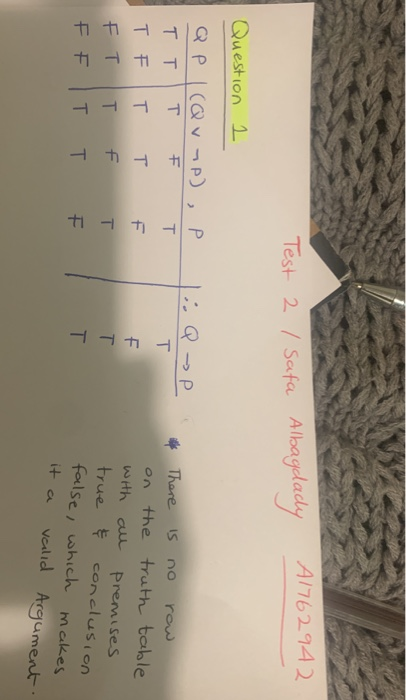 Test 2 / Safa Albagdady A1762942
Question 1
Q P | (Q ∨ ¬P) , P | ∴ Q → P
T T | T F T | T
T F | T T F | F
F T | T F T | T
F F | T T F | T
* There is no row
on the truth table
with all premises
true & conclusion
false, which makes
it a valid Argument.